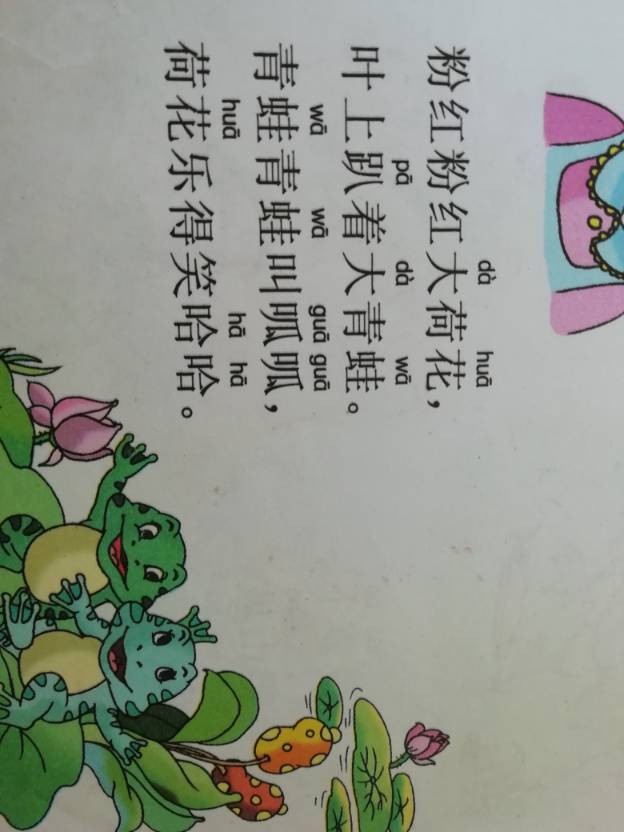 dà huā
粉红粉红大荷花，
pā dà wā
叶上趴着大青蛙。
wā wā guā guā
青蛙青蛙叫呱呱，
huā hā hā
荷花乐得笑哈哈。